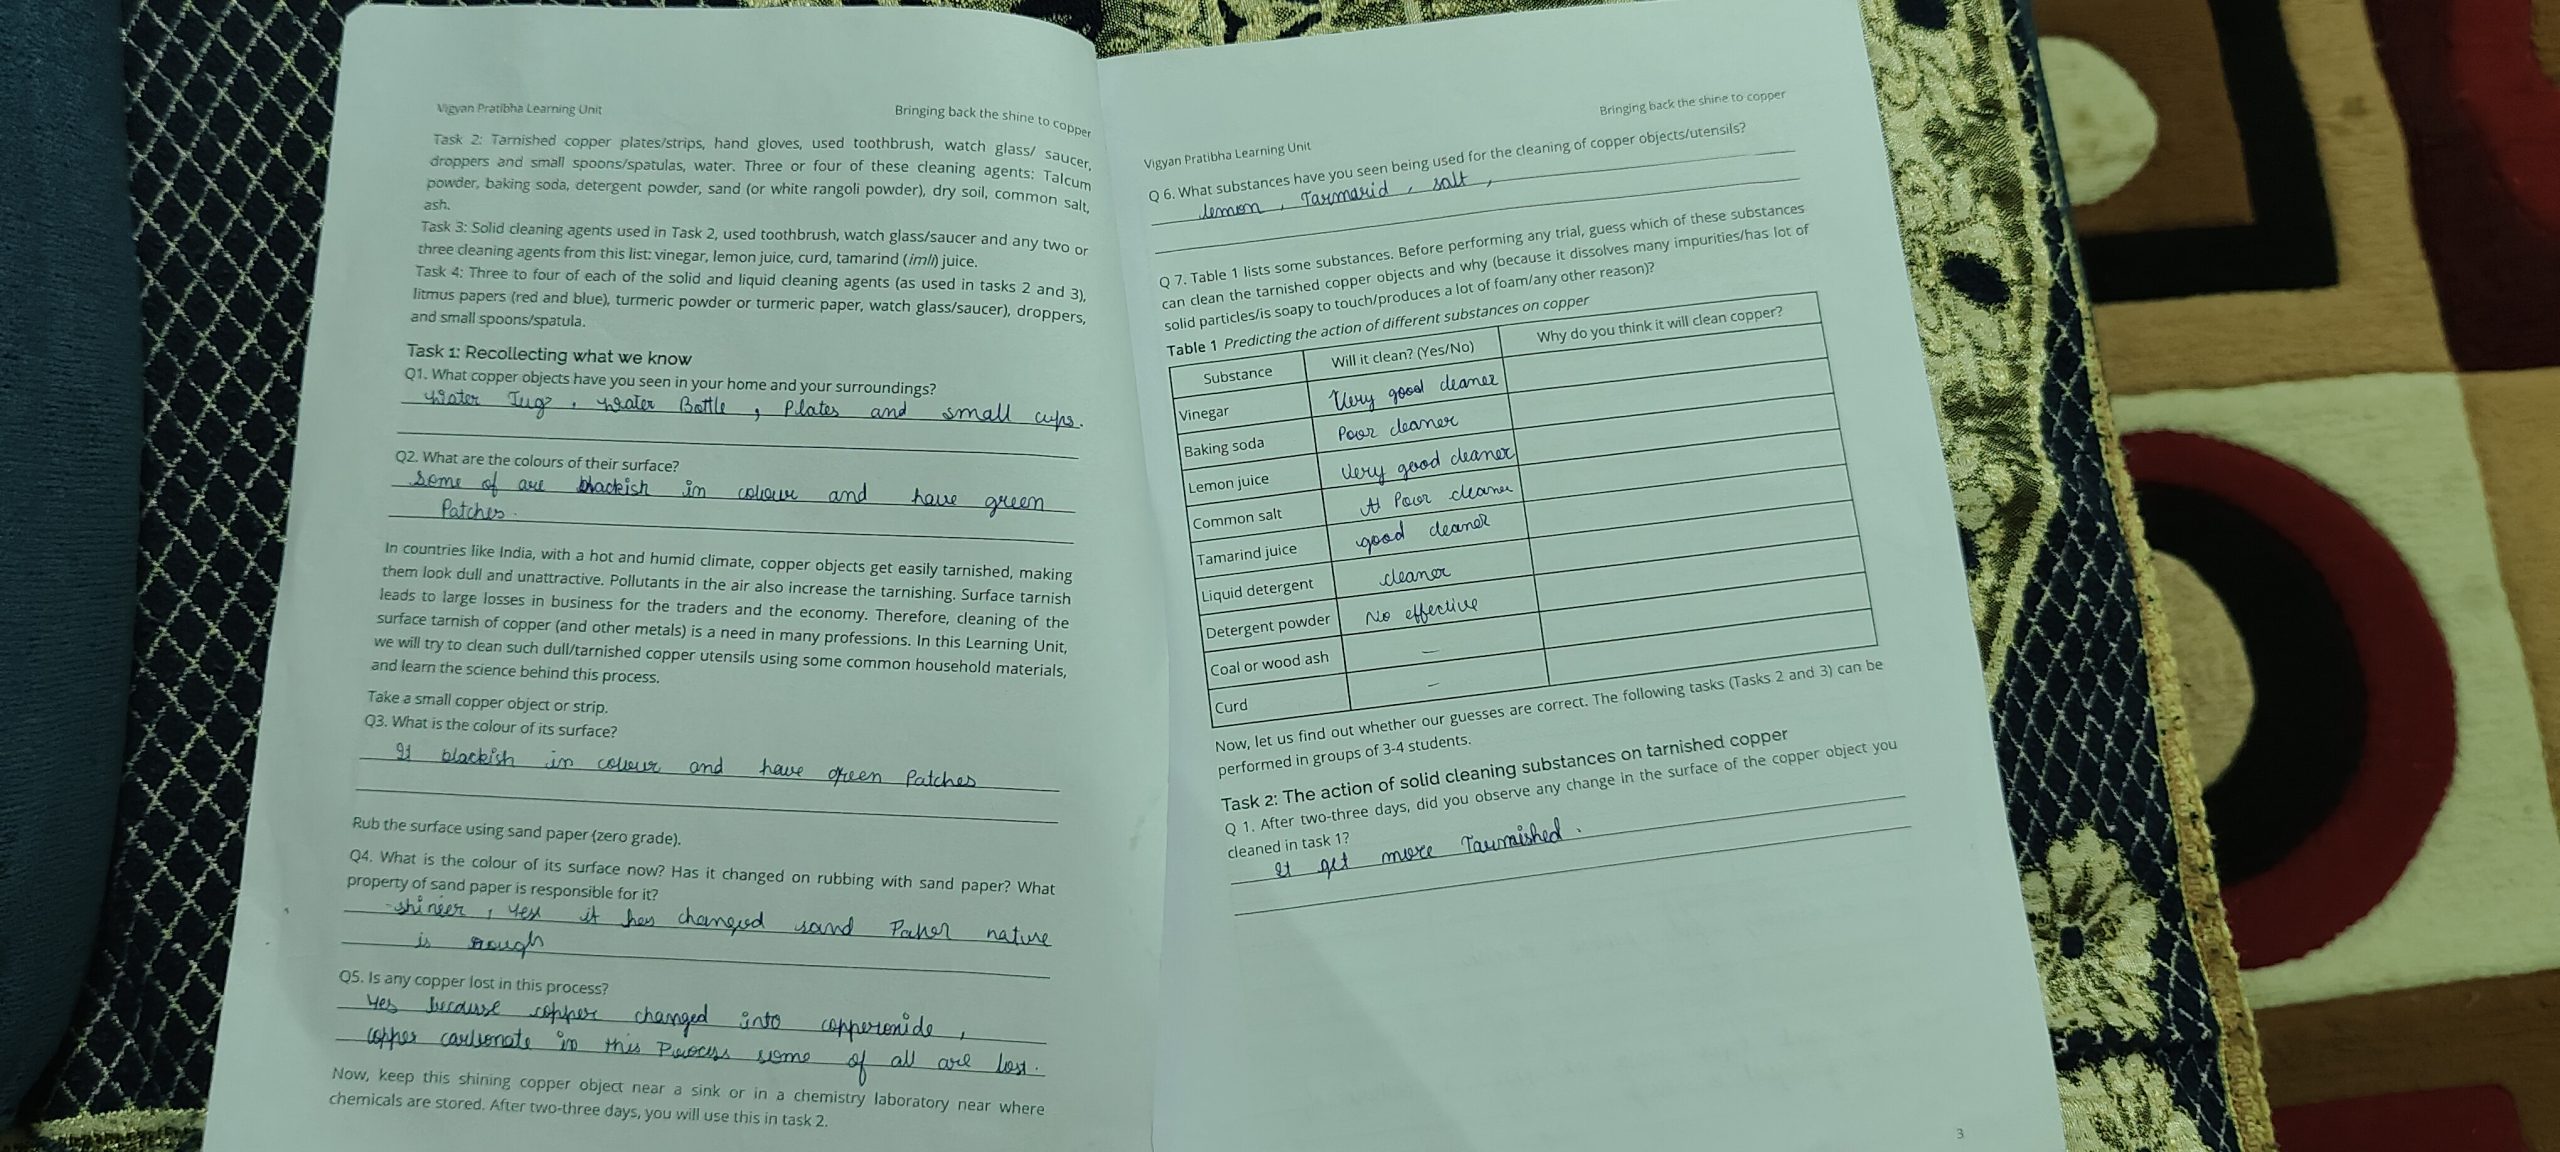 Vigyan Pratibha Learning Unit
Bringing back the shine to copper
Task 2: Tarnished copper plates/strips, hand gloves, used toothbrush, watch glass/ saucer,
droppers and small spoons/spatulas, water. Three or four of these cleaning agents: Talcum
powder, baking soda, detergent powder, sand (or white rangoli powder), dry soil, common salt,
ash.
Task 3: Solid cleaning agents used in Task 2, used toothbrush, watch glass/saucer and any two or
three cleaning agents from this list: vinegar, lemon juice, curd, tamarind (imli) juice.
Task 4: Three to four of each of the solid and liquid cleaning agents (as used in tasks 2 and 3),
litmus papers (red and blue), turmeric powder or turmeric paper, watch glass/saucer), droppers,
and small spoons/spatula.
Task 1: Recollecting what we know
Q1. What copper objects have you seen in your home and your surroundings?
Water Jugs, Water Bottle, Plates and small cups.
Q2. What are the colours of their surface?
Some of are blackish in colour and have green
Patches.
In countries like India, with a hot and humid climate, copper objects get easily tarnished, making
them look dull and unattractive. Pollutants in the air also increase the tarnishing. Surface tarnish
leads to large losses in business for the traders and the economy. Therefore, cleaning of the
surface tarnish of copper (and other metals) is a need in many professions. In this Learning Unit,
we will try to clean such dull/tarnished copper utensils using some common household materials,
and learn the science behind this process.
Take a small copper object or strip.
Q3. What is the colour of its surface?
It blackish in colour and have green Patches
Rub the surface using sand paper (zero grade).
Q4. What is the colour of its surface now? Has it changed on rubbing with sand paper? What
property of sand paper is responsible for it?
shineer, yes it has changed sand Paper nature
is rough
Q5. Is any copper lost in this process?
Yes because copper changed into copperoxide,
copper carbonate in this Process some of all are lost.
Now, keep this shining copper object near a sink or in a chemistry laboratory near where
chemicals are stored. After two-three days, you will use this in task 2.
Vigyan Pratibha Learning Unit
Bringing back the shine to copper
Q 6. What substances have you seen being used for the cleaning of copper objects/utensils?
lemon, Tarmarid, salt,
Q 7. Table 1 lists some substances. Before performing any trial, guess which of these substances
can clean the tarnished copper objects and why (because it dissolves many impurities/has lot of
solid particles/is soapy to touch/produces a lot of foam/any other reason)?
Table 1 Predicting the action of different substances on copper
Substance Will it clean? (Yes/No) Why do you think it will clean copper?
Vinegar Very good cleaner
Baking soda Poor cleaner
Lemon juice Very good cleaner
Common salt Poor cleaner
Tamarind juice good cleaner
Liquid detergent cleaner
Detergent powder No effective
Coal or wood ash –
Curd –
Now, let us find out whether our guesses are correct. The following tasks (Tasks 2 and 3) can be
performed in groups of 3-4 students.
Task 2: The action of solid cleaning substances on tarnished copper
Q 1. After two-three days, did you observe any change in the surface of the copper object you
cleaned in task 1?
It get more Tarnished.
3